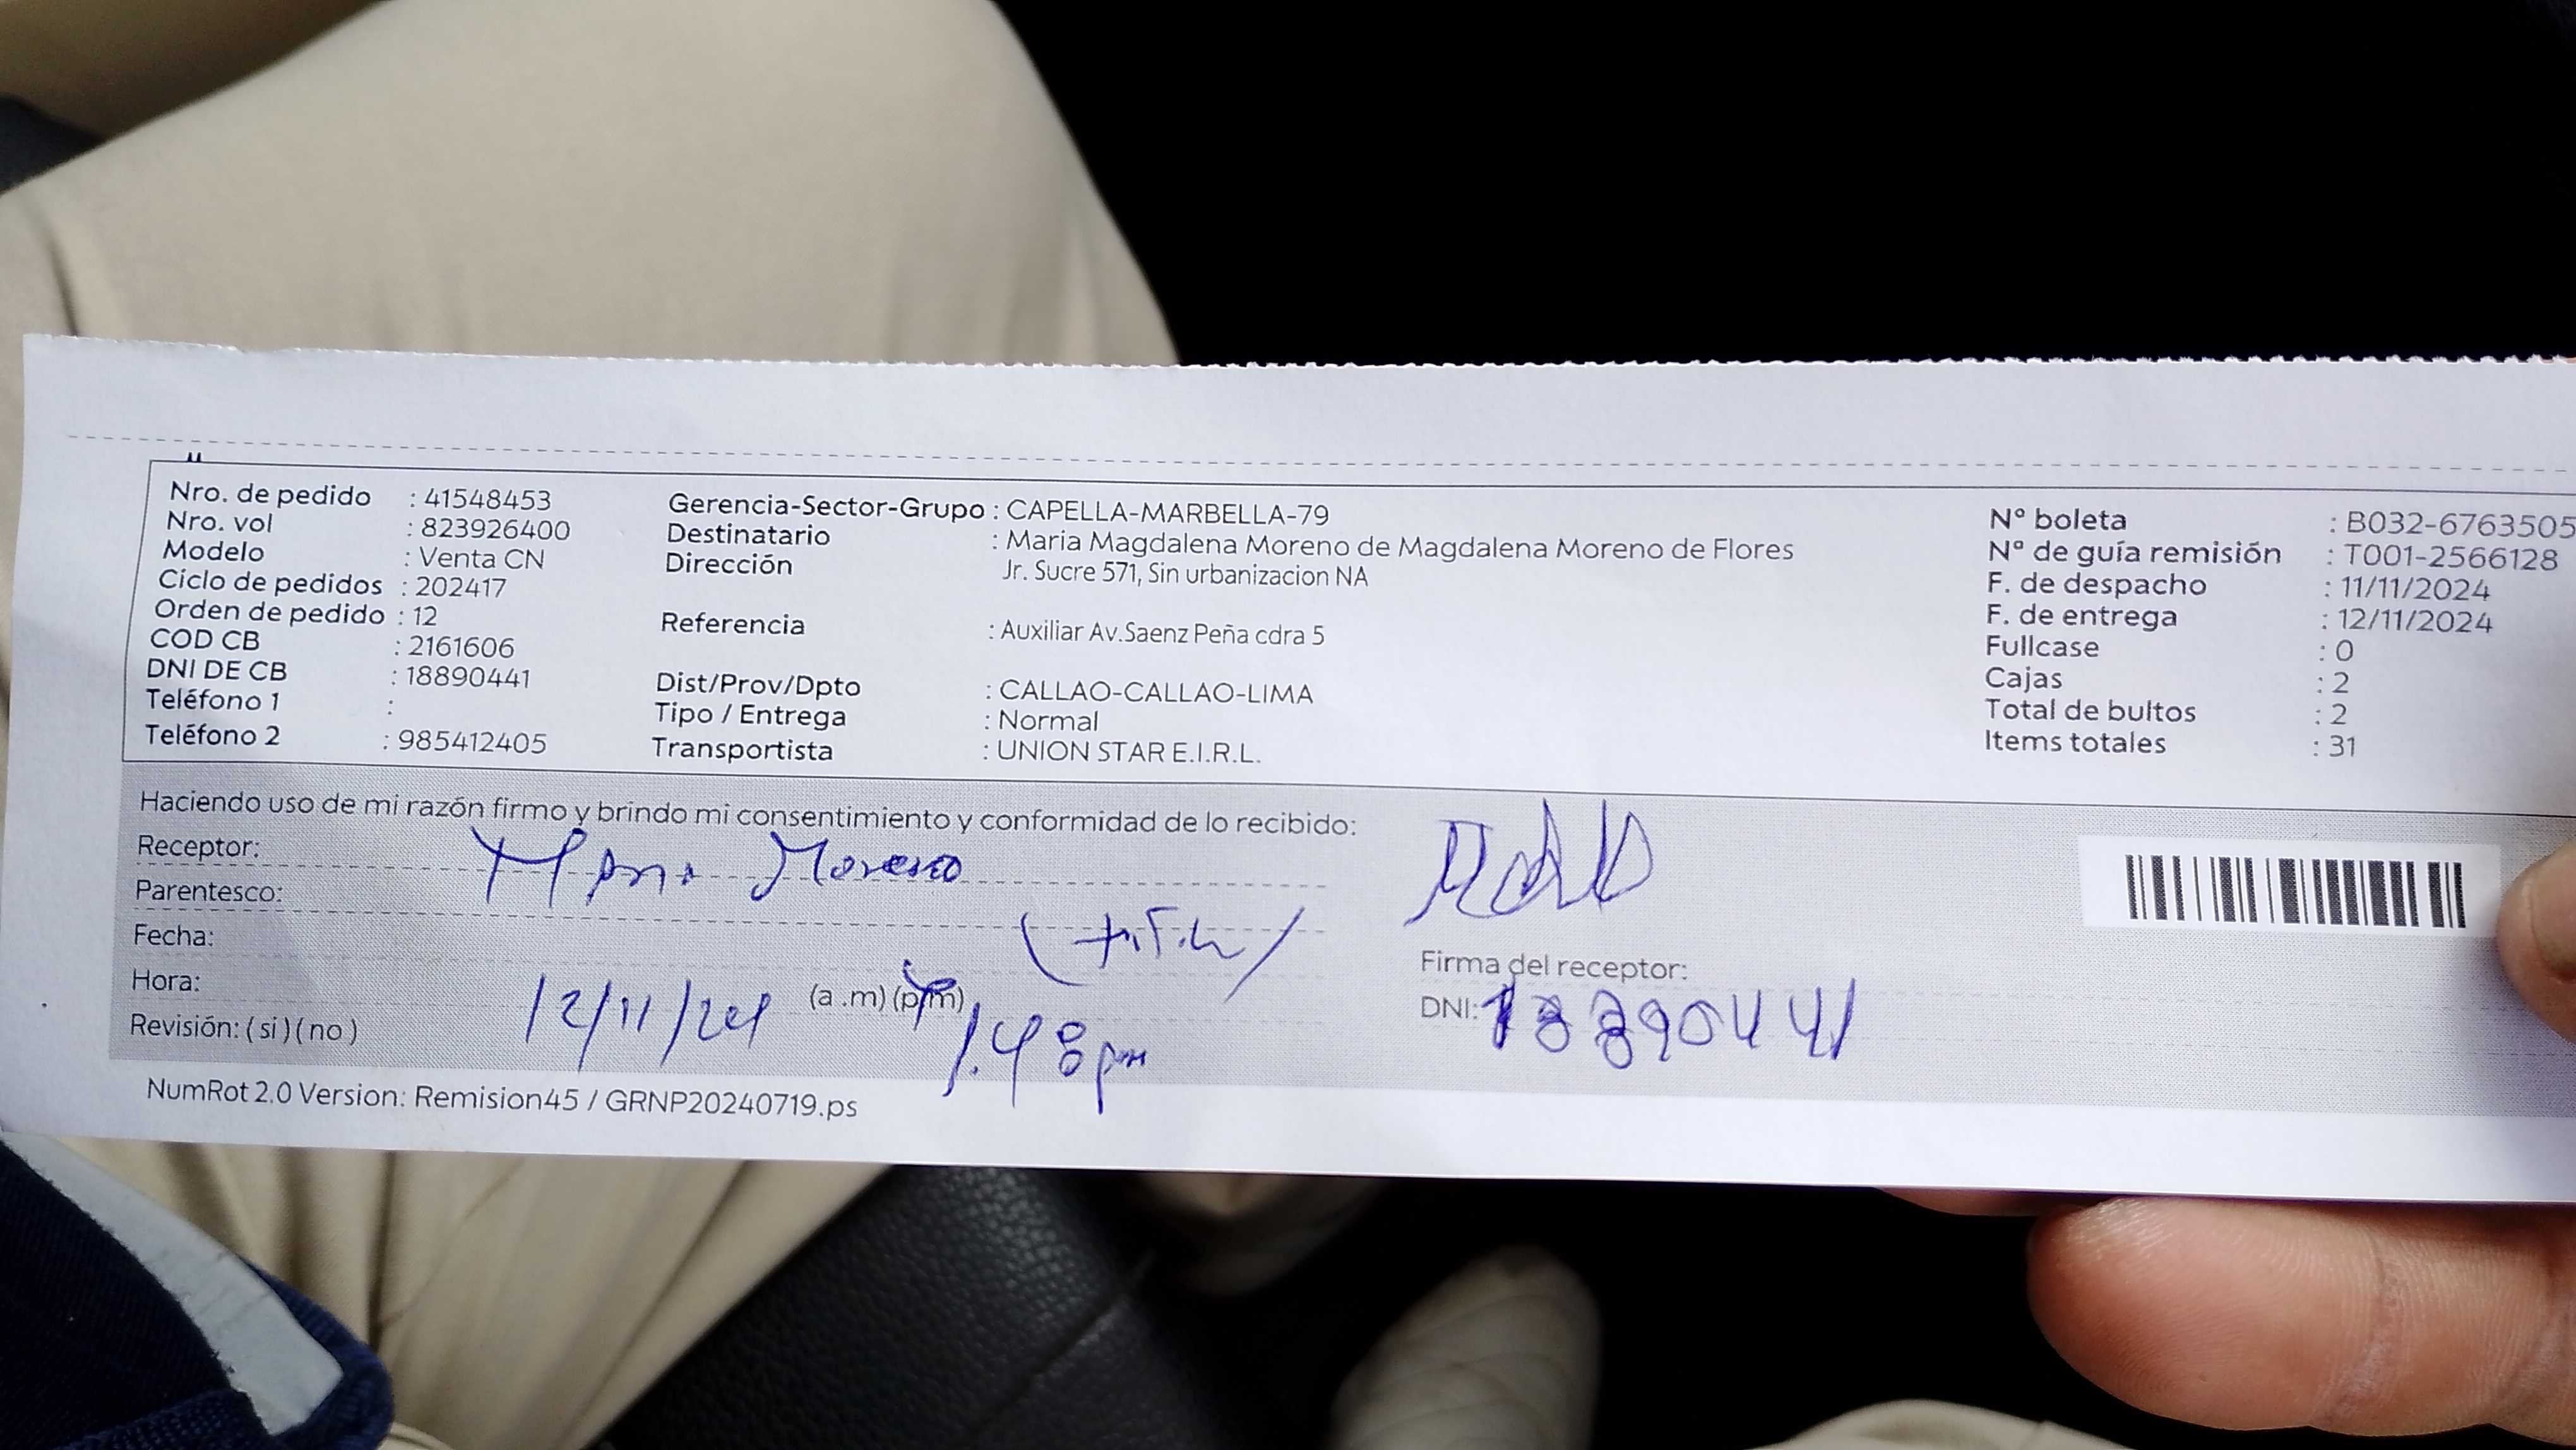 Nro. de pedido : 41548453
Nro. vol : 823926400
Modelo : Venta CN
Ciclo de pedidos : 202417
Orden de pedido : 12
COD CB : 2161606
DNI DE CB : 18890441
Teléfono 1 :
Teléfono 2 : 985412405
Gerencia-Sector-Grupo : CAPELLA-MARBELLA-79
Destinatario : Maria Magdalena Moreno de Magdalena Moreno de Flores
Dirección Jr. Sucre 571, Sin urbanizacion NA
Referencia : Auxiliar Av.Saenz Peña cdra 5
Dist/Prov/Dpto : CALLAO-CALLAO-LIMA
Tipo / Entrega : Normal
Transportista : UNION STAR E.I.R.L.
N° boleta : B032-6763505
N° de guía remisión : T001-2566128
F. de despacho : 11/11/2024
F. de entrega : 12/11/2024
Fullcase : 0
Cajas : 2
Total de bultos : 2
Items totales : 31
Haciendo uso de mi razón firmo y brindo mi consentimiento y conformidad de lo recibido:
Receptor: Moreno
Parentesco:
Fecha:
Hora: 12/11/24 (a .m) (p.m) 1.48pm
Revisión: ( si ) ( no )
Firma del receptor:
DNI: 18890441
NumRot 2.0 Version: Remision45 / GRNP20240719.ps